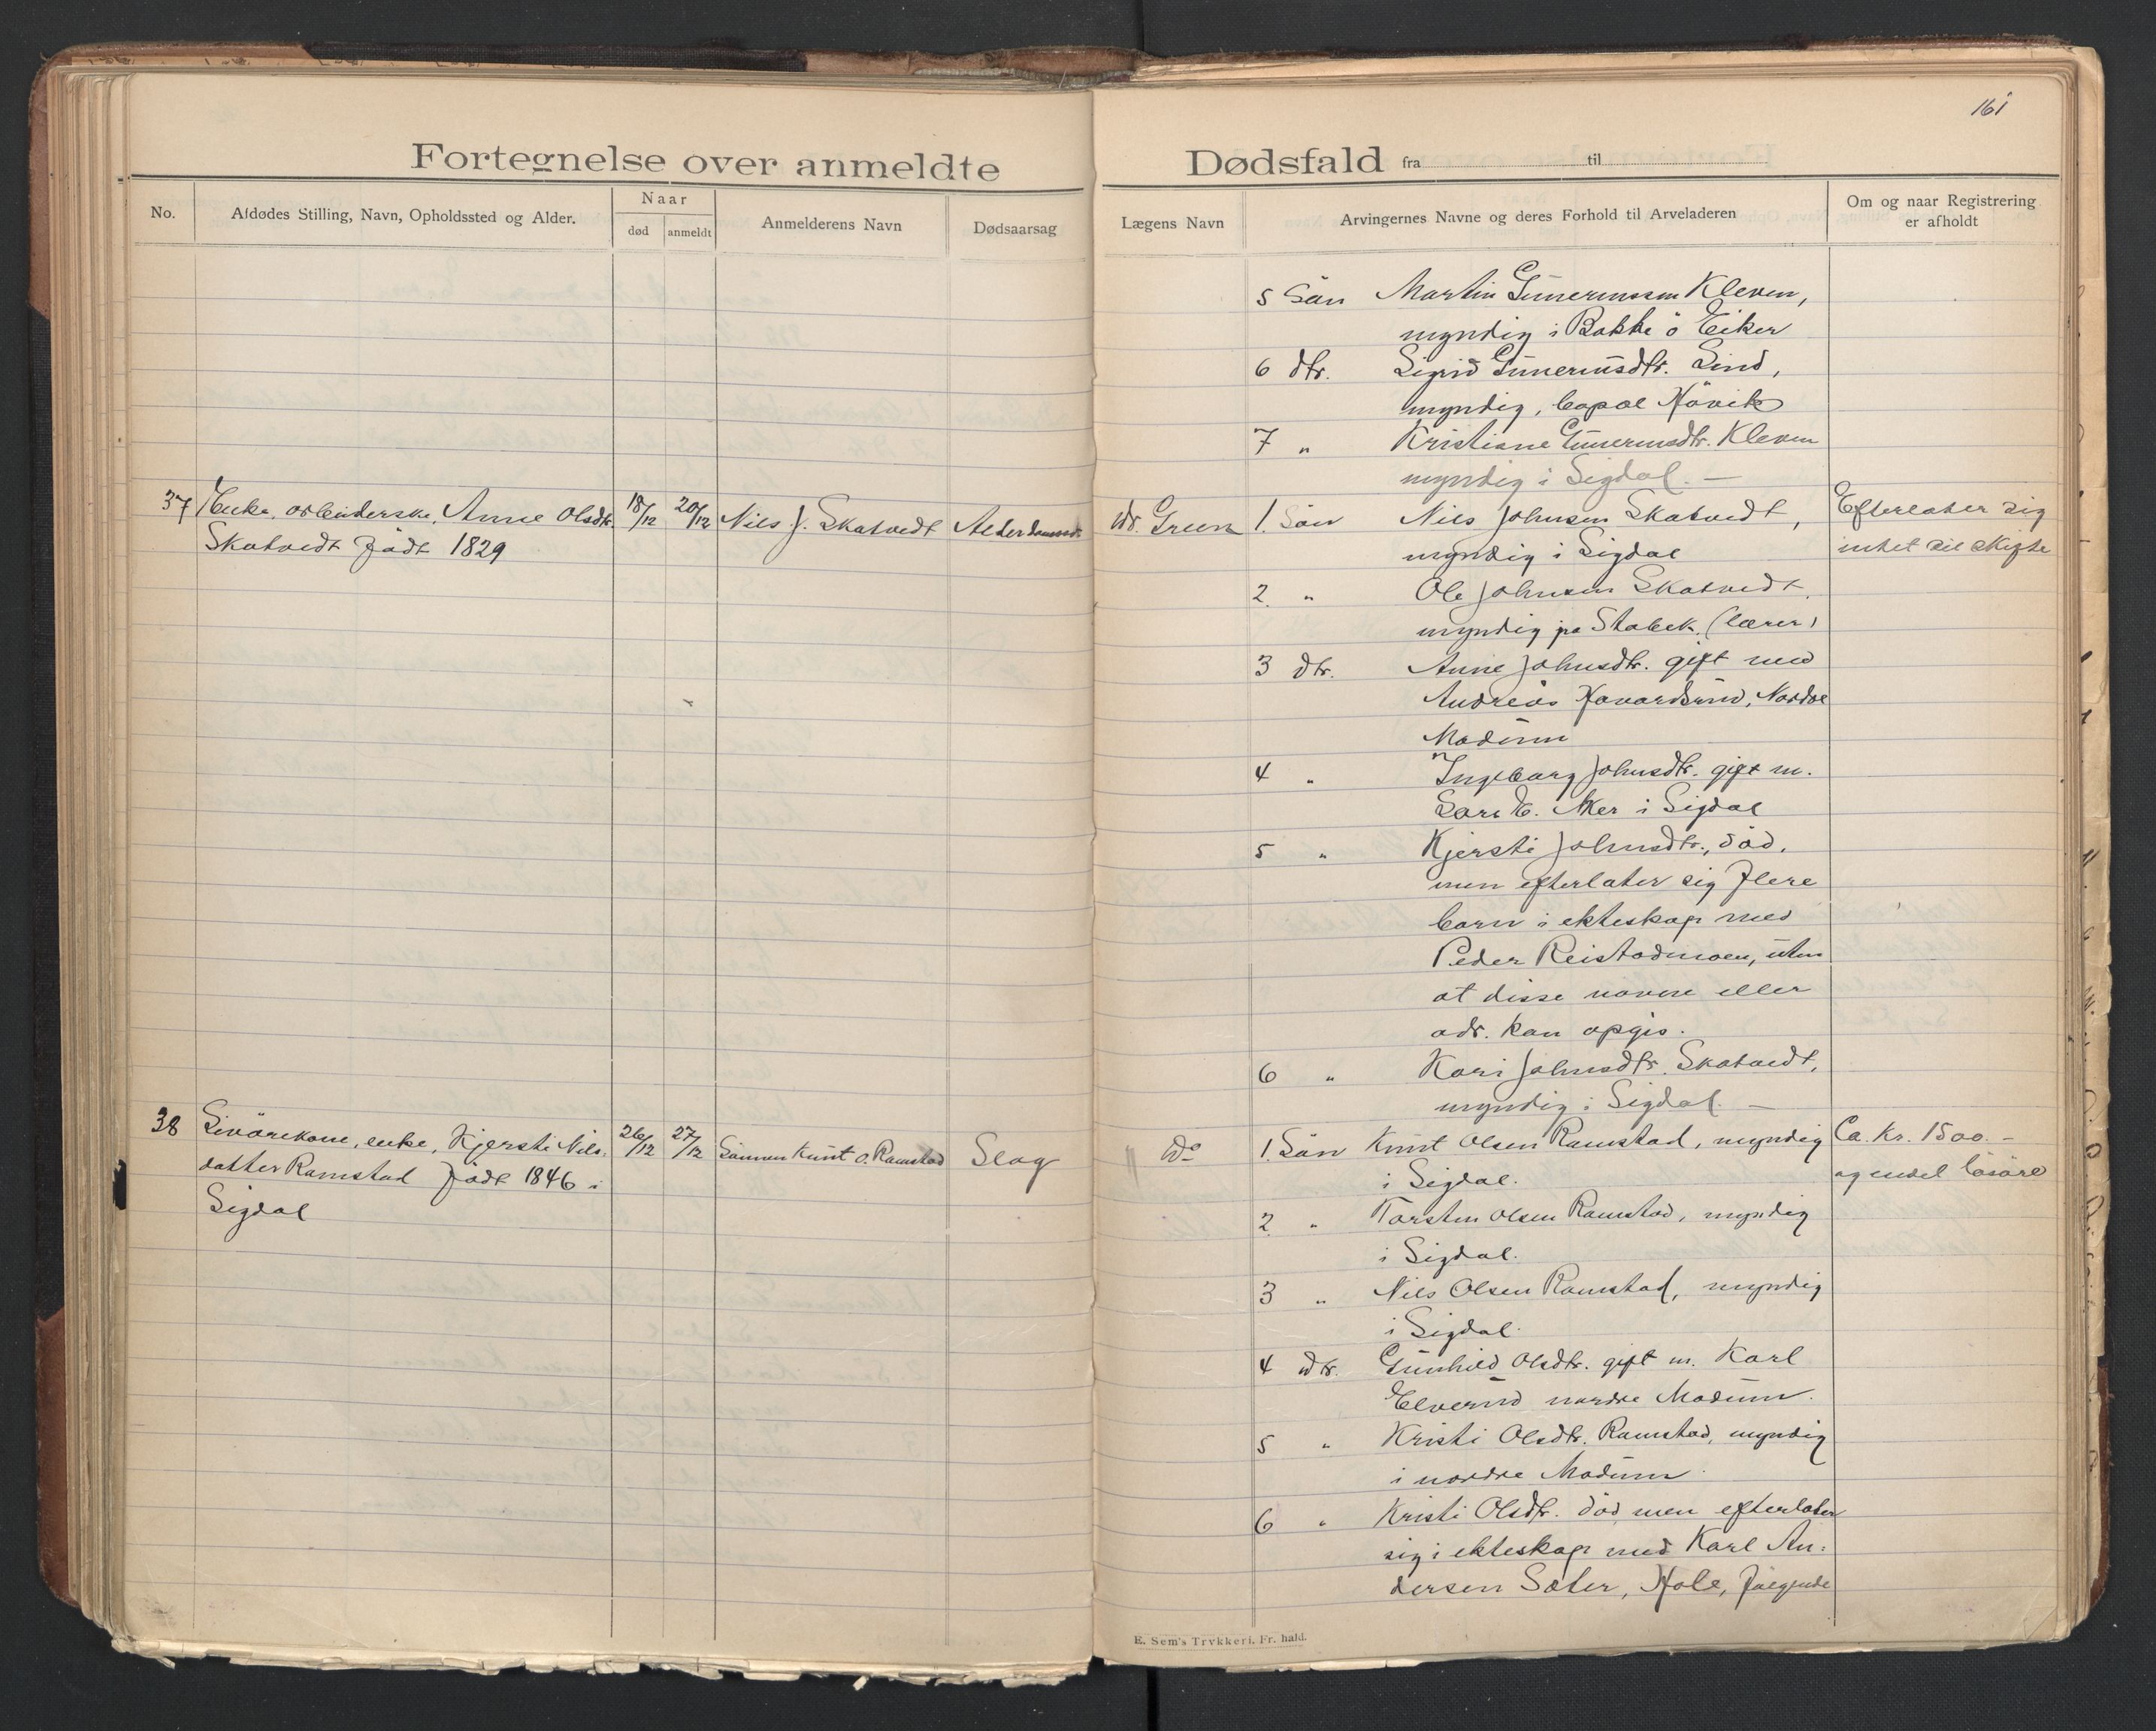 161
Fortegnelse over anmeldte Dødsfald fra til
No.
Afdødes Stilling, Navn, Opholdssted og Alder.
Naar
død
anmeldt
Anmelderens Navn
Dødsaarsag
Lægens Navn
Arvingernes Navne og deres Forhold til Arveladeren
Om og naar Registrering
er afholdt
5 Sön Martin Gunerussen Kleven,
myndig i Bakke ö Eiker
6 dtr. Sigrid Gunerusdtr. Lind,
myndig, Hövik
7 " Kristiane Gunerusdtr. Kleven
myndig i Sigdal. —
37 Enke, arbeiderske, Anne Olsdtr. 18/12 20/12 Nils J. Skatvedt Alderdomssv. Dr. Green 1. Sön Nils Johnsen Skatvedt, Efterlater sig
Skatvedt född 1829 myndig i Sigdal intet til skifte
2. " Ole Johnsen Skatvedt,
myndig pa Stabek. (lærer)
3 dtr. Anne Johnsdtr. gift med
Andreas Havardsrud, Nordre
Modum
4 " Ingeborg Johnsdtr. gift m.
Lars E. Aker i Sigdal
5 " Kjersti Johnsdtr., död,
men efterlater sig flere
barn i ekteskap med
Peder Reistadmoen, uten
at disse navne eller
adr. kan opgis.
6 " Kari Johnsdtr. Skatvedt,
myndig i Sigdal. —
38 Livörekone, enke, Kjersti Nils- 26/12 27/12 Sönnen Knut O. Ramstad Slag Do 1. Sön Knut Olsen Ramstad, myndig Ca. Kr. 1500. —
datter Ramstad född 1846 i i Sigdal. og endel lösöre
Sigdal
2. " Torsten Olsen Ramstad, myndig
i Sigdal.
3 " Nils Olsen Ramstad, myndig
i Sigdal.
4 dtr. Gunhild Olsdtr. gift m. Karl
Elverud nordre Modum.
5 " Kristi Olsdtr. Ramstad, myndig
i nordre Modum.
6 " Kristi Olsdtr. död, men efterlater
sig i ekteskap med Karl An-
dersen Sæter, Hole, fölgende
E. Sem's Trykkeri, Fr. hald.